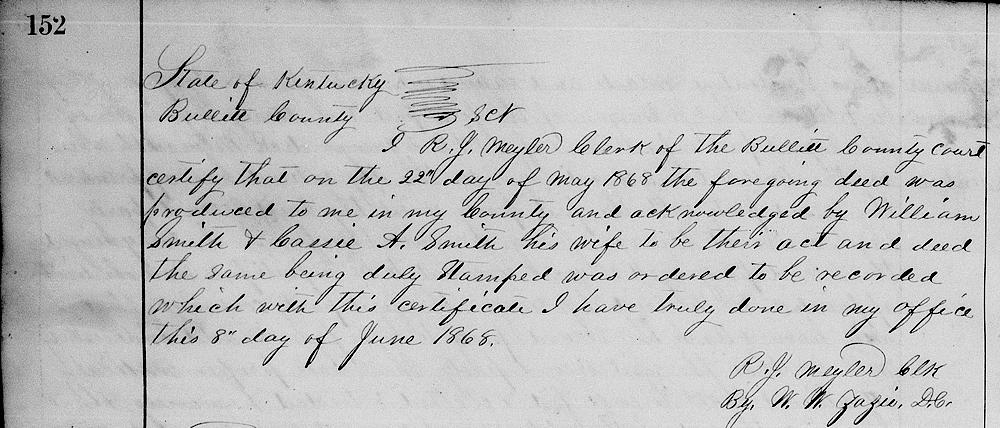 152
State of Kentucky
Bullitt County Sct
I R. J. Meyler Clerk of the Bullitt County Court
certify that on the 22" day of May 1868 the foregoing deed was
produced to me in my County and acknowledged by William
Smith & Cassie A. Smith his wife to be their act and deed
the same being duly Stamped was ordered to be recorded
which with this certificate I have truly done in my office
this 8" day of June 1868.
R. J. Meyler Clk
By. W. W. D.C.